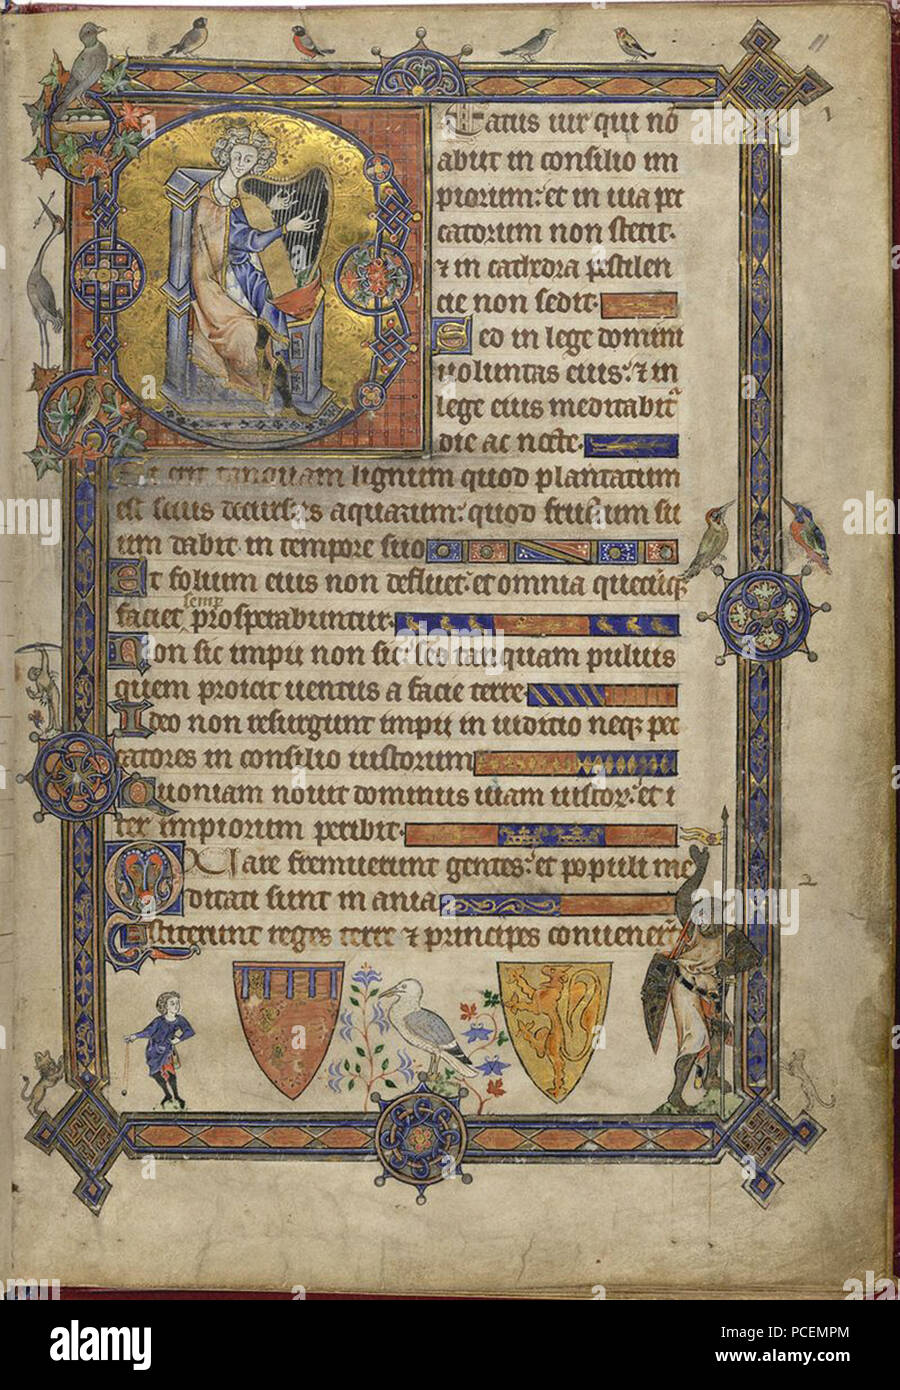 11
1
Eatus uir qui nō
abiit in consilio im
piorum: et in uia pec
catorum non stetit.
⁊ in cathedra pestilen
cie non sedit.
Sed in lege domini
uoluntas eius: ⁊ in
lege eius meditabit᷑
die ac nocte.
Et erit tanquam lignum quod plantatum
est secus decursus aquarum: quod fructum su
um dabit in tempore suo
Et folium eius non defluet: et omnia quecūqꝫ
faciet semꝑ prosperabuntur.
Non sic impii non sic: sed tanquam puluis
quem proicit uentus a facie terre
Ideo non resurgunt impii in iudicio neqꝫ pec
catores in consilio iustorum
Quoniam nouit dominus uiam iustoꝝ: et i
ter impiorum peribit.
2
Quare fremuerunt gentes: et populi me
ditati sunt inania
Astiterunt reges terre ⁊ principes conuener̄t
alamy
alamy stock photo
Image ID: PCEMPM
www.alamy.com